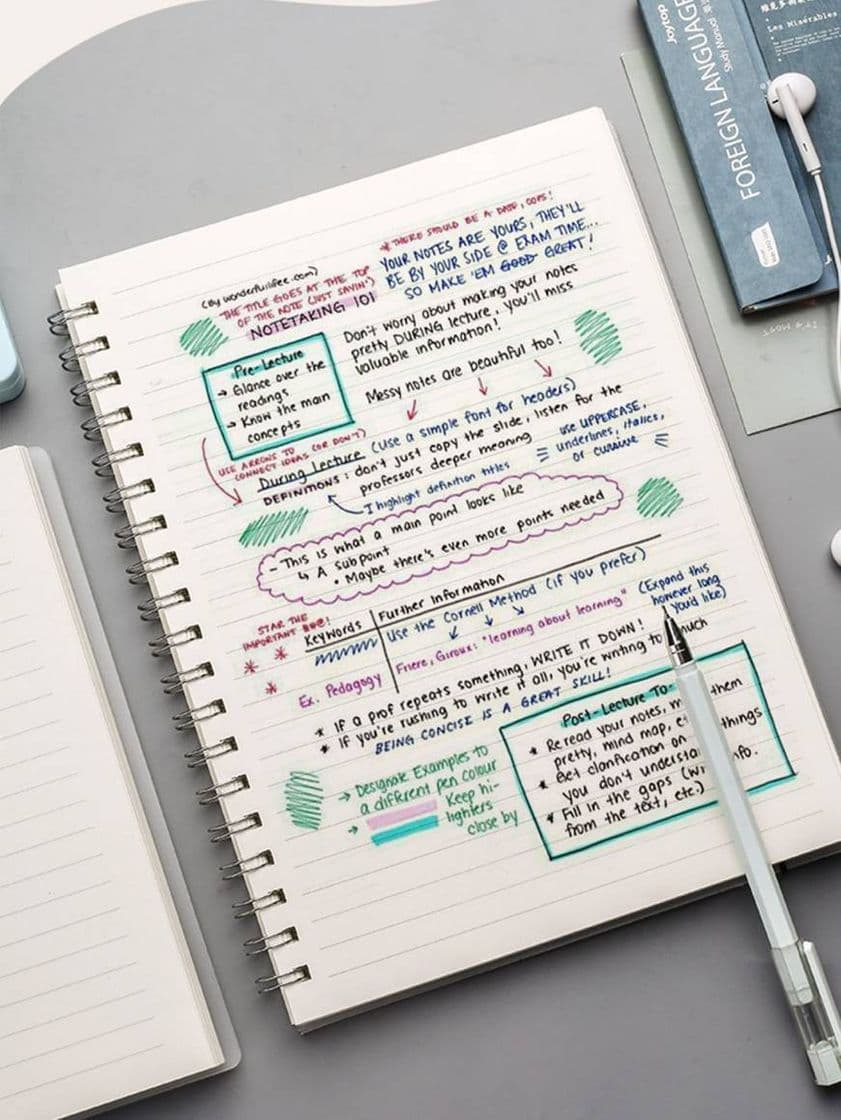 Joytop
FOREIGN LANGUAGE
Study Words
Les Misérables
* THERE SHOULD BE A DATE, OOPS!
YOUR NOTES ARE YOURS, THEY'LL
BE BY YOUR SIDE @ EXAM TIME...
SO MAKE 'EM GOOD GREAT!
(By wonderfullifee.com)
THE TITLE GOES AT THE TOP
OF THE NOTE (JUST SAYIN')
NOTETAKING 101
Don't worry about making your notes
pretty DURING lecture, you'll miss
valuable information!
Messy notes are beautiful too!
Pre-Lecture
→ Glance over the
readings
→ Know the main
concepts
USE ARROWS TO
CONNECT IDEAS (OR DON'T)
During Lecture (Use a simple font for headers)
DEFINITIONS: don't just copy the slide, listen for the
professors deeper meaning
I highlight definition titles
use UPPERCASE,
underlines, italics,
or cursive
- This is what a main point looks like
↳ A subpoint
• Maybe there's even more points needed
STAR THE
IMPORTANT #@!
Keywords
Further Information
Use the Cornell Method (if you prefer)
Ex. Pedagogy
Friere, Giroux: "learning about learning"
(Expand this
however long
you'd like)
* If a prof repeats something, WRITE IT DOWN!
* If you're rushing to write it all, you're writing too much
BEING CONCISE IS A GREAT SKILL!
→ Designate Examples to
a different pen colour
→ Keep hi-
lighters
close by
Post-Lecture To
* Reread your notes, them
pretty, mind map, things
* Get clarification on
you don't understand info.
* Fill in the gaps
from the text, etc.)